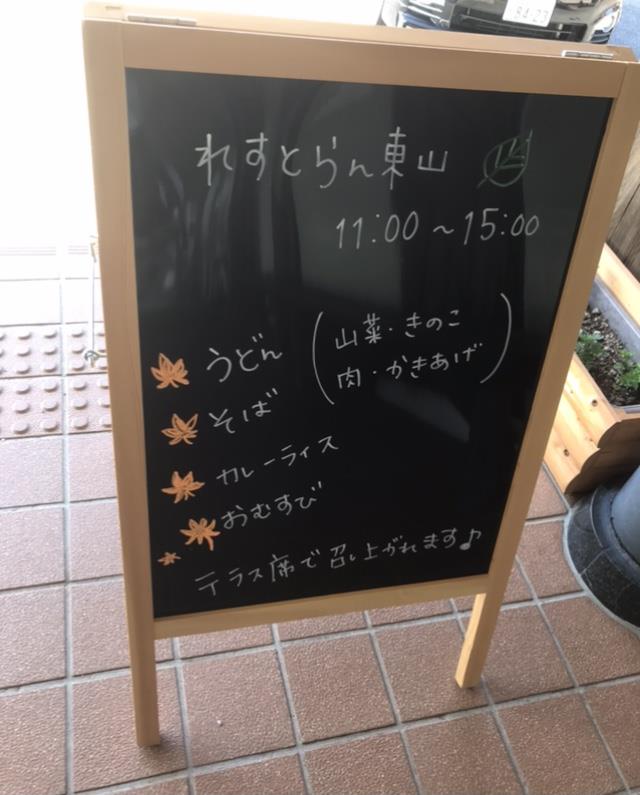 れすとらん東山
11:00～15:00
うどん
そば
(山菜・きのこ
肉・かきあげ)
カレーライス
おむすび
テラス席で召し上がれます♪
8423